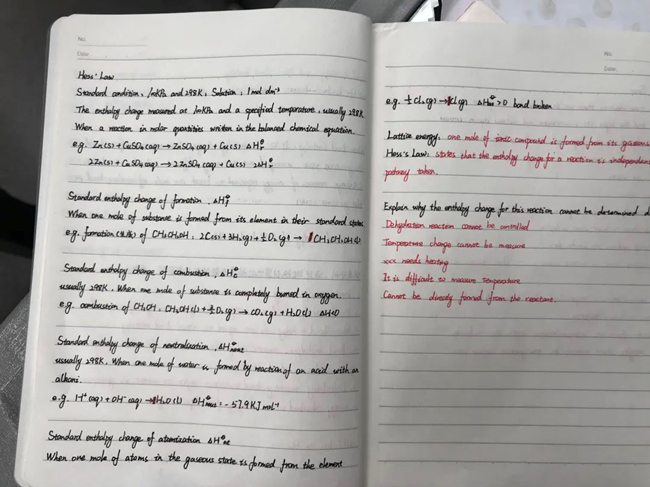 No.
Date.
Hess' Law
Standard condition, 100kPa and 298K, Solution, 1 mol dm⁻³
The enthalpy change measured at 100kPa and a specified temperature, usually 298K
When a reaction in molar quantities written in the balanced chemical equation.
e.g. Zn(s) + CuSO₄(aq) → ZnSO₄(aq) + Cu(s) ΔH
2Zn(s) + CuSO₄(aq) → 2ZnSO₄(aq) + Cu(s) 2ΔH
Standard enthalpy change of formation, ΔHf⦵
When one mole of substance is formed from its element in their standard states
e.g. formation of CH₃CH₂OH: 2C(s) + 3H₂(g) + ½O₂(g) → 1CH₃CH₂OH(l)
Standard enthalpy change of combustion, ΔHc⦵
usually 298K. When one mole of substance is completely burned in oxygen.
e.g. combustion of CH₃OH: CH₃OH(l) + O₂(g) → CO₂(g) + H₂O(l) ΔH<0
Standard enthalpy change of neutralisation, ΔHneut⦵
usually 298K. When one mole of water is formed by reaction of an acid with an
alkani.
e.g. H⁺(aq) + OH⁻(aq) → 1H₂O(l) ΔHneut⦵ = -57.9KJ mol⁻¹
Standard enthalpy change of atomisation ΔHat⦵
When one mole of atoms in the gaseous state is formed from the element
No.
Date.
e.g. ½Cl₂(g) → 1Cl(g) ΔH⦵ > 0 bond broken
Lattice energy: one mole of ionic compound is formed from its gaseous
Hess's Law: states that the enthalpy change for a reaction is independent
pathway taken.
Explain why the enthalpy change for this reaction cannot be determined d
Dehydration reaction cannot be controlled
Temperature change cannot be measure
xxx needs heating
It is difficult to measure temperature
Cannot be directly formed from the reactant.